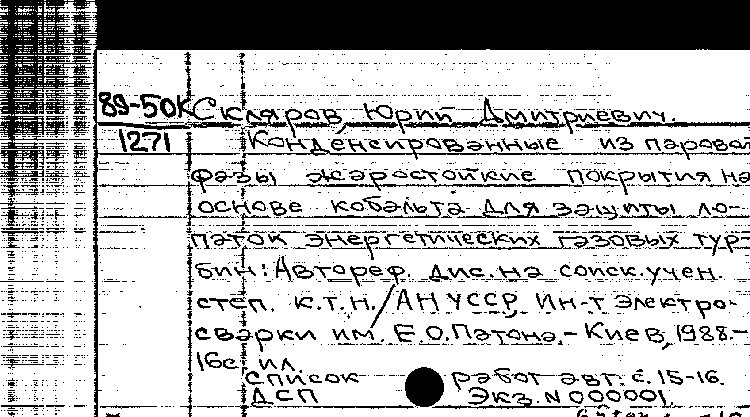 89-50К Скляров, Юрий Дмитриевич.
1271 Конденсированные из паровой
фазы жаростойкие покрытия на
основе кобальта для защиты ло-
паток энергетических газовых тур-
бин: Автореф. дис. на соиск. учен.
степ. к.т.н. / АН УССР, Ин-т электро-
сварки им. Е.О. Патона. - Киев, 1988. -
16с., ил.
список работ авт. с. 15-16.
ДСП Экз. N 000001